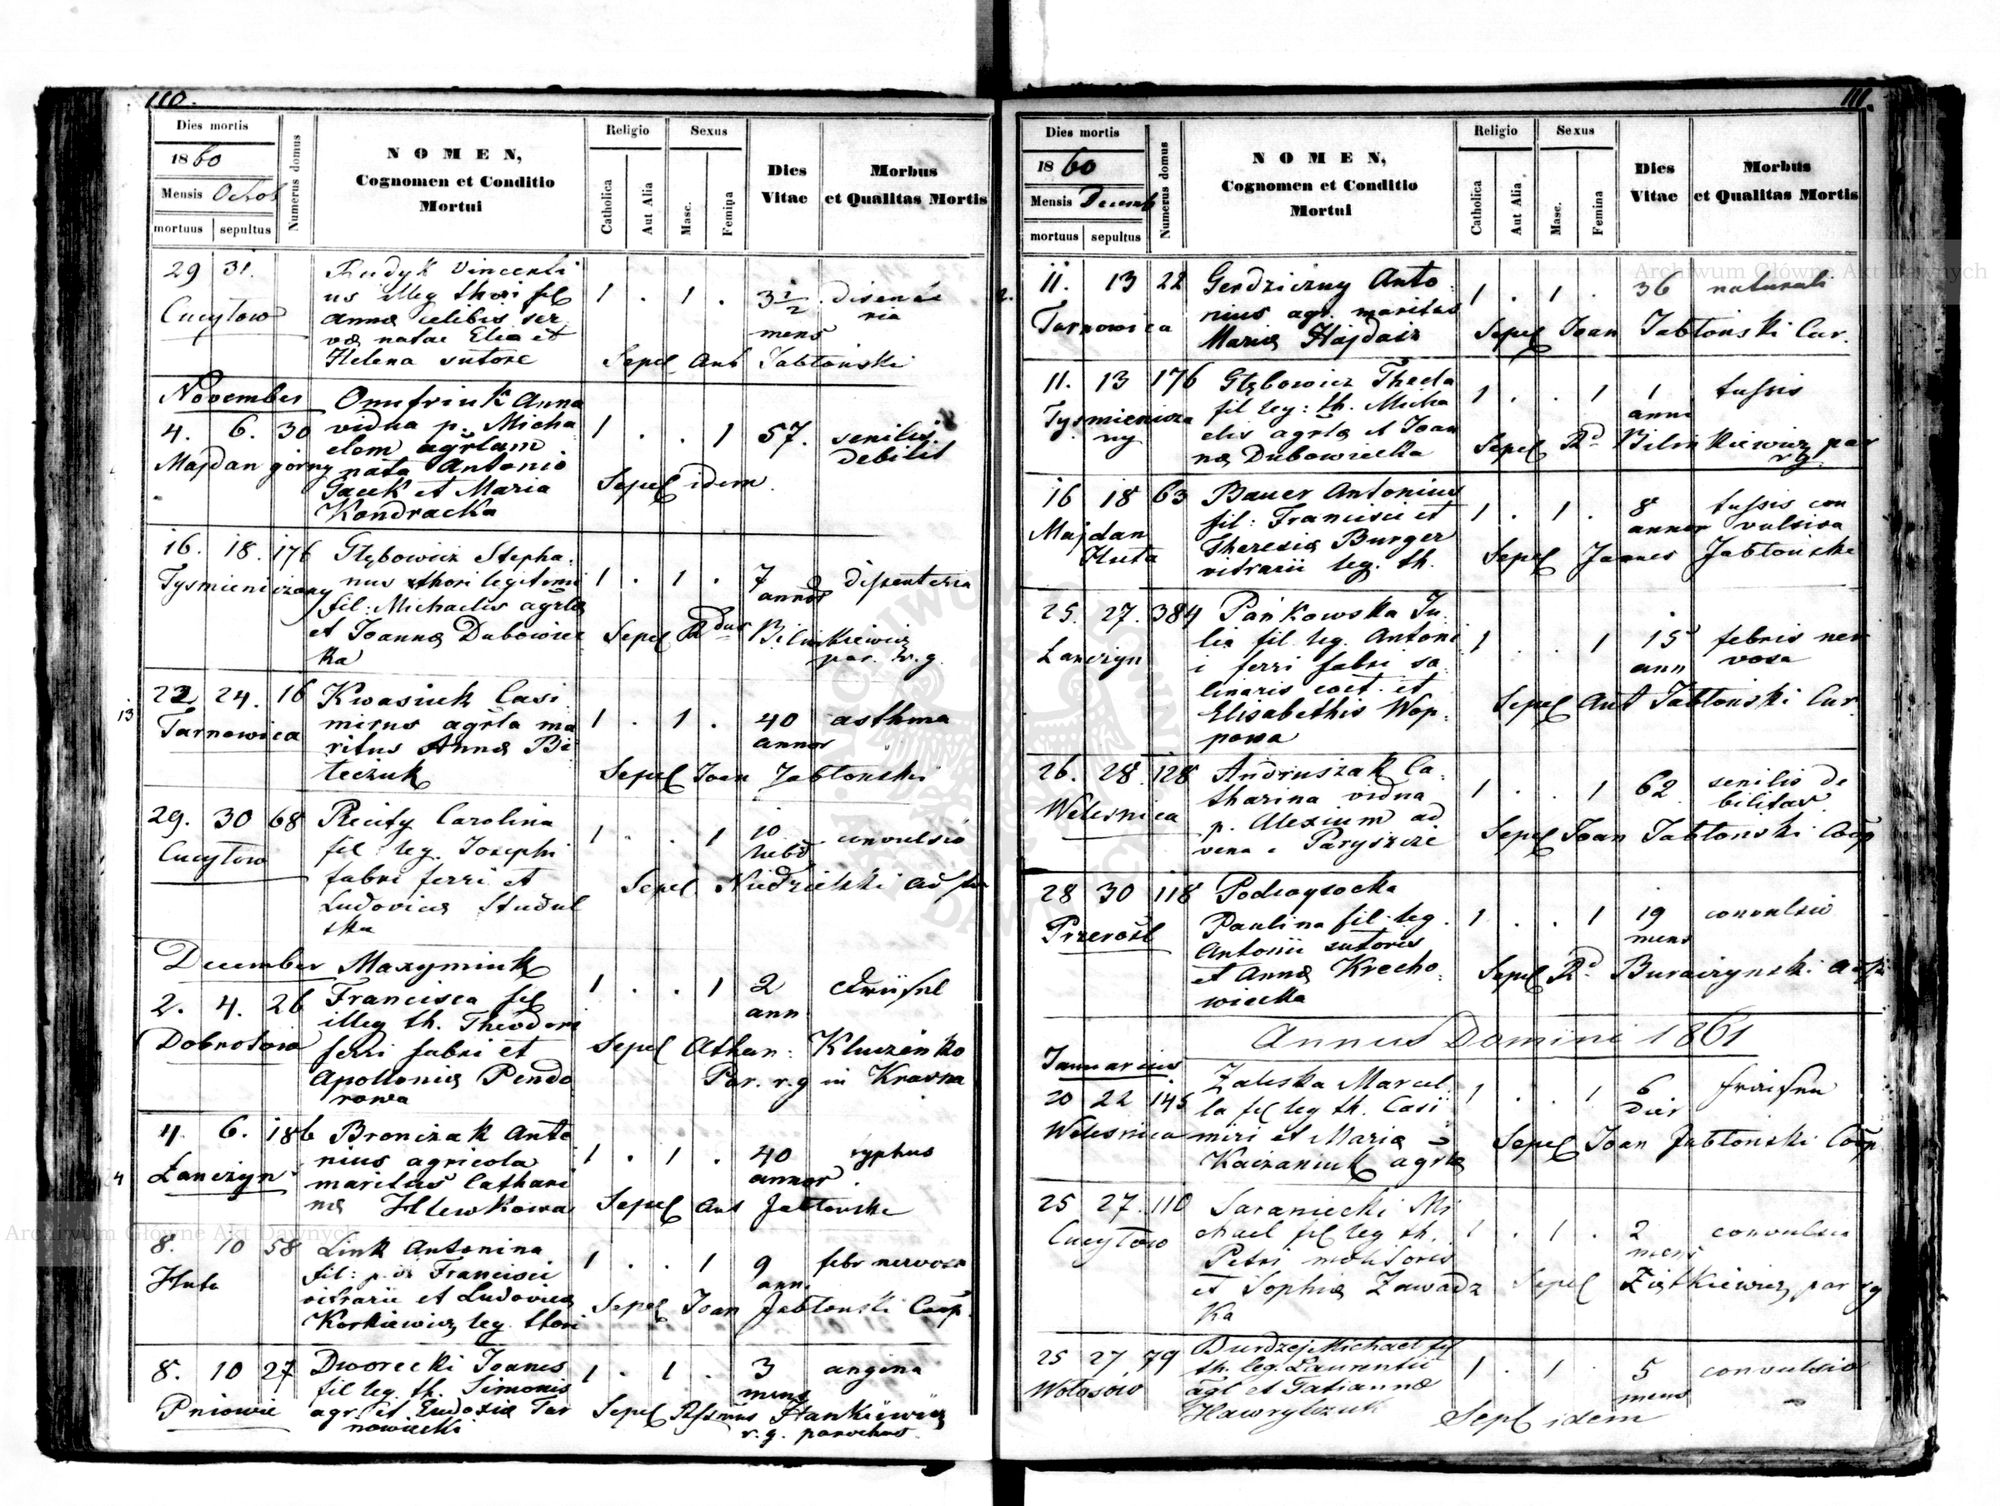 110.
Dies mortis
1860
Mensis Octob
mortuus sepultus
Numerus domus
NOMEN,
Cognomen et Conditio
Mortui
Religio
Catholica
Aut Alia
Sexus
Masc.
Femina
Dies
Vitae
Morbus
et Qualitas Mortis
29 31.
Cucylow
Rudyk Vincenti
us illeg thori fil
Annæ celibis ser
væ natae Elia et
Helena sutore
1 . 1 . 3 1/2 mens
Sepel Ant Jabłonski
November
4. 6. 30
Majdan górny
Onufriuk Anna
vidua p. Micha
elem agrlam
nata Antonio
Jacek et Maria
Kondracka
1 . . 1 57. senilis
debilit
Sepel idem
16. 18. 176
Tysmieniczany
Głębowicz Stepha
nus thori legitimi
fil: Michaelis agrlæ
et Joannæ Dubowiec
ka
1 . 1 . 7 annor
Sepel Rdus Bilinkiewicz
par. r. g.
13
22 24. 16
Tarnowica
Kwasiuk Casi
mirus agrla ma
ritus Annæ Bi
leczuk
1 . 1 . 40 annor asthma
Sepel Joan Jabłonski
29. 30 68
Cucylow
Carolina
fil leg. Josephi
fabri ferri et
Ludovicæ Studul
ska
1 . . 1 10 hebd convulsio
Sepel Niedzielski
December
2. 4. 26
Dobrotow
Maxymiuk
Francisca fil
illeg th. Theodori
ferri fabri et
Apolloniæ Pendo
rowa
1 . . 1 2 ann
Sepel Athan: Kluczenko
Par. r.g in Krasna
4
4 6. 186
Łanczyn
Bronczak Anto
nius agricola
maritus Cathari
næ Hlewkowa
1 . 1 . 40 annor typhus
Sepel Ant Jabłonski
8. 10 58
Huta
Link Antonina
fil: Francisci
vitrarii et Ludovicæ
Korkiewicz leg. thori
1 . . 1 9 ann febr nervosa
Sepel Joan Jabłonski Coop.
8. 10 27
Pniowie
Dworecki Joanes
fil leg. th. Simonis
agr. et Eudoxiæ Tar
nowiecki
1 . 1 . 3 mens angina
Sepel Hankiewicz
r. g. parochus.
111.
Dies mortis
1860
Mensis Decemb
mortuus sepultus
Numerus domus
NOMEN,
Cognomen et Conditio
Mortui
Religio
Catholica
Aut Alia
Sexus
Masc.
Femina
Dies
Vitae
Morbus
et Qualitas Mortis
2.
11. 13 22
Tarnowica
Gerdziczny Anto
nius agr. maritus
Mariæ Hajdasz
1 . 1 . 36 naturali
Sepel Joan Jabłonski Cur.
11. 13 176
Tysmienicza
ny
Głębowicz Thecla
fil leg: th. Micha
elis agrlæ et Joan
næ Dubowiecka
1 . . 1 1 anni tussis
Sepel Rd Bilinkiewicz par
rg
16 18 63
Majdan
Huta
Bauer Antonius
fil: Francisci et
Theresiæ Burger
vitrarii leg. th.
1 . 1 . 8 annor tussis con
vulsiva
Sepel Joanes Jabłonski
25. 27. 384
Łanczyn
Pańkowska Ju
lia fil leg. Antoni
i ferri fabri sa
linaris coct. et
Elisabethis Wop
powa
1 . . 1 15 ann febris ner
vosa
Sepel Ant Jabłonski Cur.
26. 28. 128
Welesnica
Andruszak Ca
tharina vidua
p. Alexium ad
vena e Paryszcze
1 . . 1 62 senilis de
bilitas
Sepel Joan Jabłonski Coop
28 30 118
Przerośl
Podwysocka
Paulina fil. leg.
Antonii sutoris
et Annæ Krecho
wiecka
1 . . 1 19 mens convulsio
Sepel Rd Buraczynski
Annus Domini 1861
Januarius
20 22 145
Welesnica
Zaleska Marcel
la fil leg th. Casi
miri et Mariæ
Kaczaniuk agrlæ
1 . . 1 6 dier
Sepel Joan Jabłonski Coop
25 27. 110
Cucylow
Saraniecki Mi
chael fil leg th.
Petri molitoris
et Sophiæ Zawadz
Ka
1 . 1 . 2 mens convulsio
Sepel Ziętkiewicz par rg
25 27 79
Wołosów
Durdzej Michael fil
th. leg. Laurentii
agl et Tatiannæ
Hawrylczuk
1 . 1 . 5 mens convulsio
Sepel idem
Archiwum Główne Akt Dawnych
Archiwum Główne Akt Dawnych